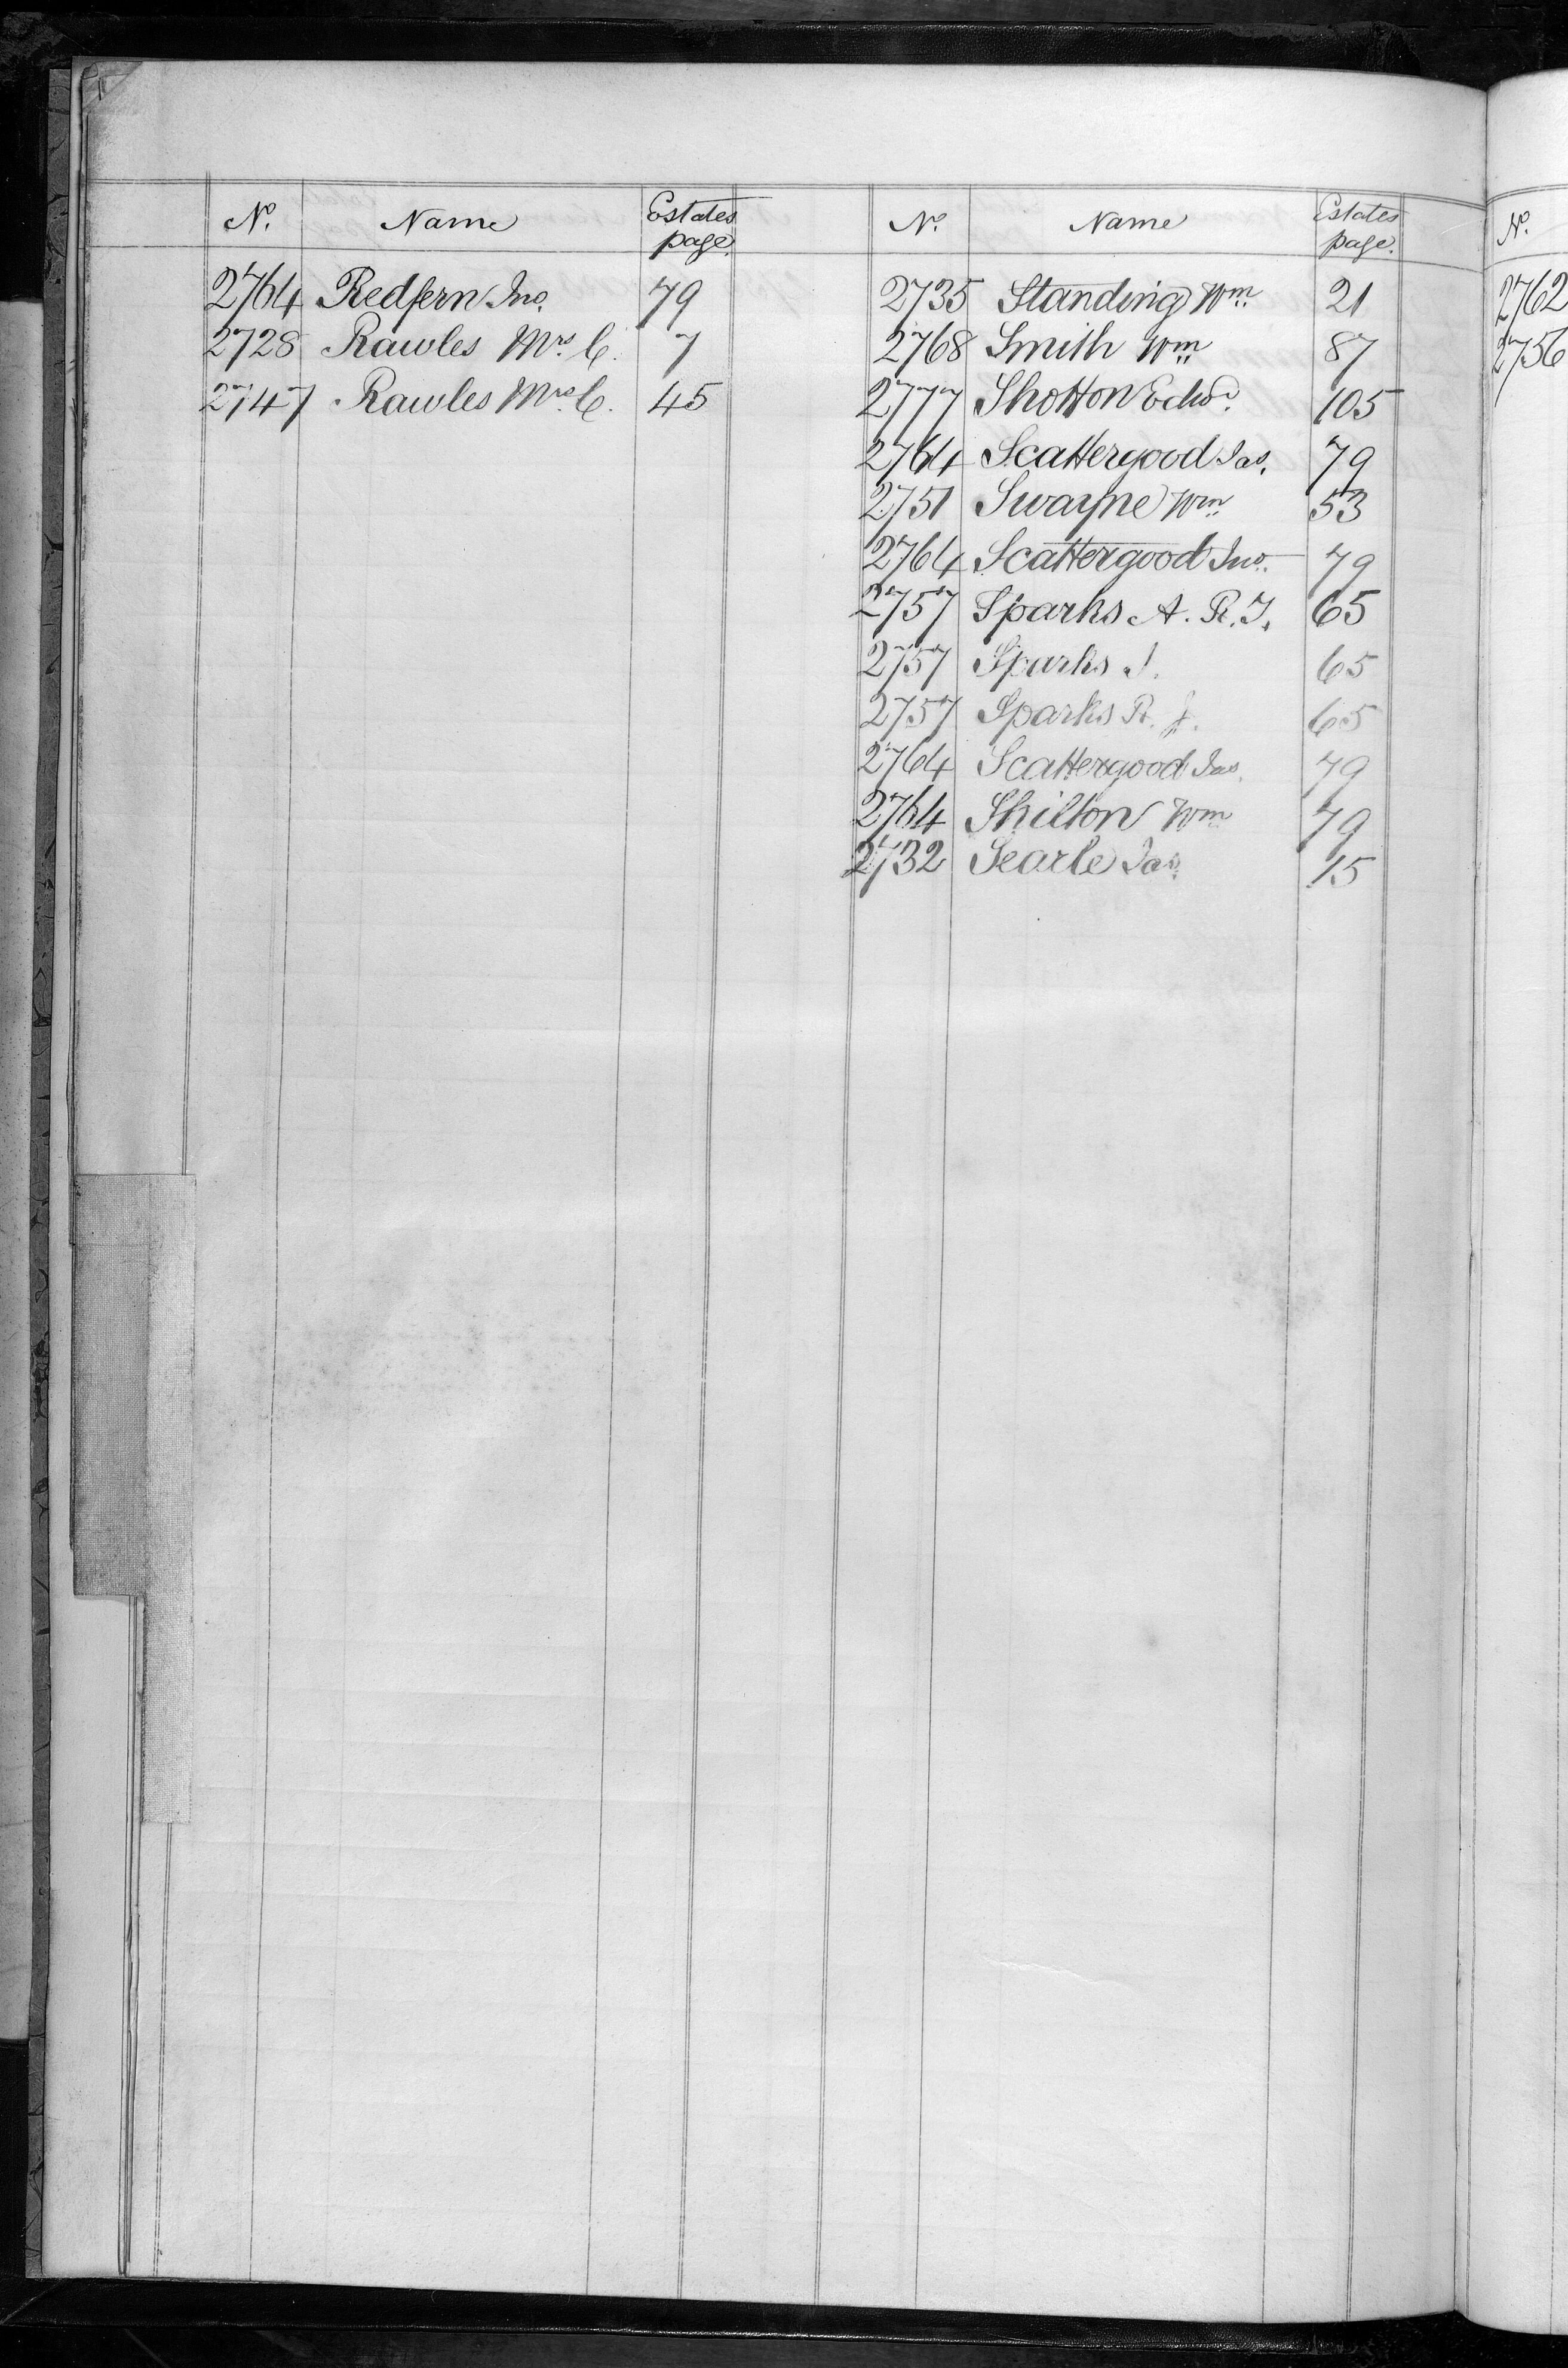 No. Name Estates page.
2764 Redfern Jno. 79
2728 Rawles Mrs. C. 7
2747 Rawles Mrs. C. 45
No. Name Estates page.
2735 Standing Wm. 21
2768 Smith Wm. 87
2777 Shotton Edwd. 105
2764 Scattergood Jas. 79
2751 Swayne Wm. 53
2764 Scattergood Jno. 79
2757 Sparks A. R. J. 65
2757 Sparks J. 65
2757 Sparks R. J. 65
2764 Scattergood Jas. 79
2764 Shilton Wm 79
2732 Searle Jas. 15
No.
2762
2756